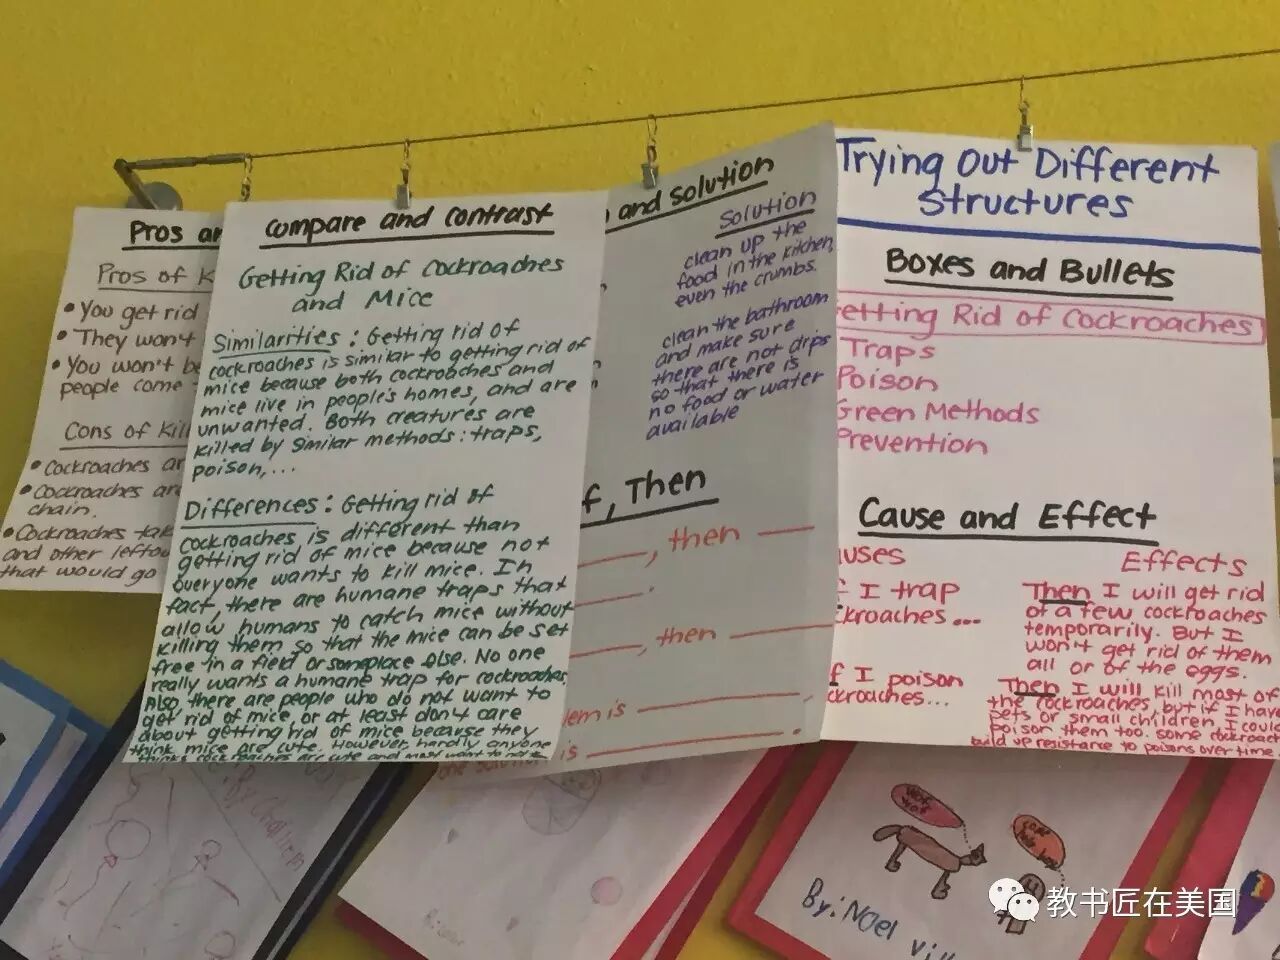 Pros
Pros of
• You get rid
• They won't
• You won't
people come
Cons of
• Cockroaches
• Cockroaches
chain.
• Cockroaches
and other
that would go
Compare and Contrast
Getting Rid of Cockroaches
and Mice
Similarities: Getting rid of
cockroaches is similar to getting rid of
mice because both cockroaches and
mice live in people's homes, and are
unwanted. Both creatures are
killed by similar methods: traps,
poison,...
Differences: Getting rid of
cockroaches is different than
getting rid of mice because not
everyone wants to kill mice. In
fact, there are humane traps that
allow humans to catch mice without
killing them so that the mice can be set
free in a field or someplace else. No one
really wants a humane trap for cockroaches.
Also, there are people who do not want to
get rid of mice, or at least don't care
about getting rid of mice because they
think mice are cute. However, hardly anyone
thinks cockroaches are cute and most want to
and Solution
Solution
clean up the
food in the kitchen,
even the crumbs.
clean the bathroom
and make sure
there are not drips
so that there is
no food or water
available
f, Then
, then
, then
is
is
Trying Out Different
Structures
Boxes and Bullets
etting Rid of Cockroaches
Traps
Poison
Green Methods
Prevention
Cause and Effect
auses
Effects
f I trap
ckroaches...
Then I will get rid
of a few cockroaches
temporarily. But I
won't get rid of them
all or of the eggs.
f I poison
ckroaches...
Then I will kill most of
the cockroaches, but if I have
pets or small children, I could
poison them too. some cockroac
build up resistance to poisons over time
By:
By: Noel
教书匠在美国